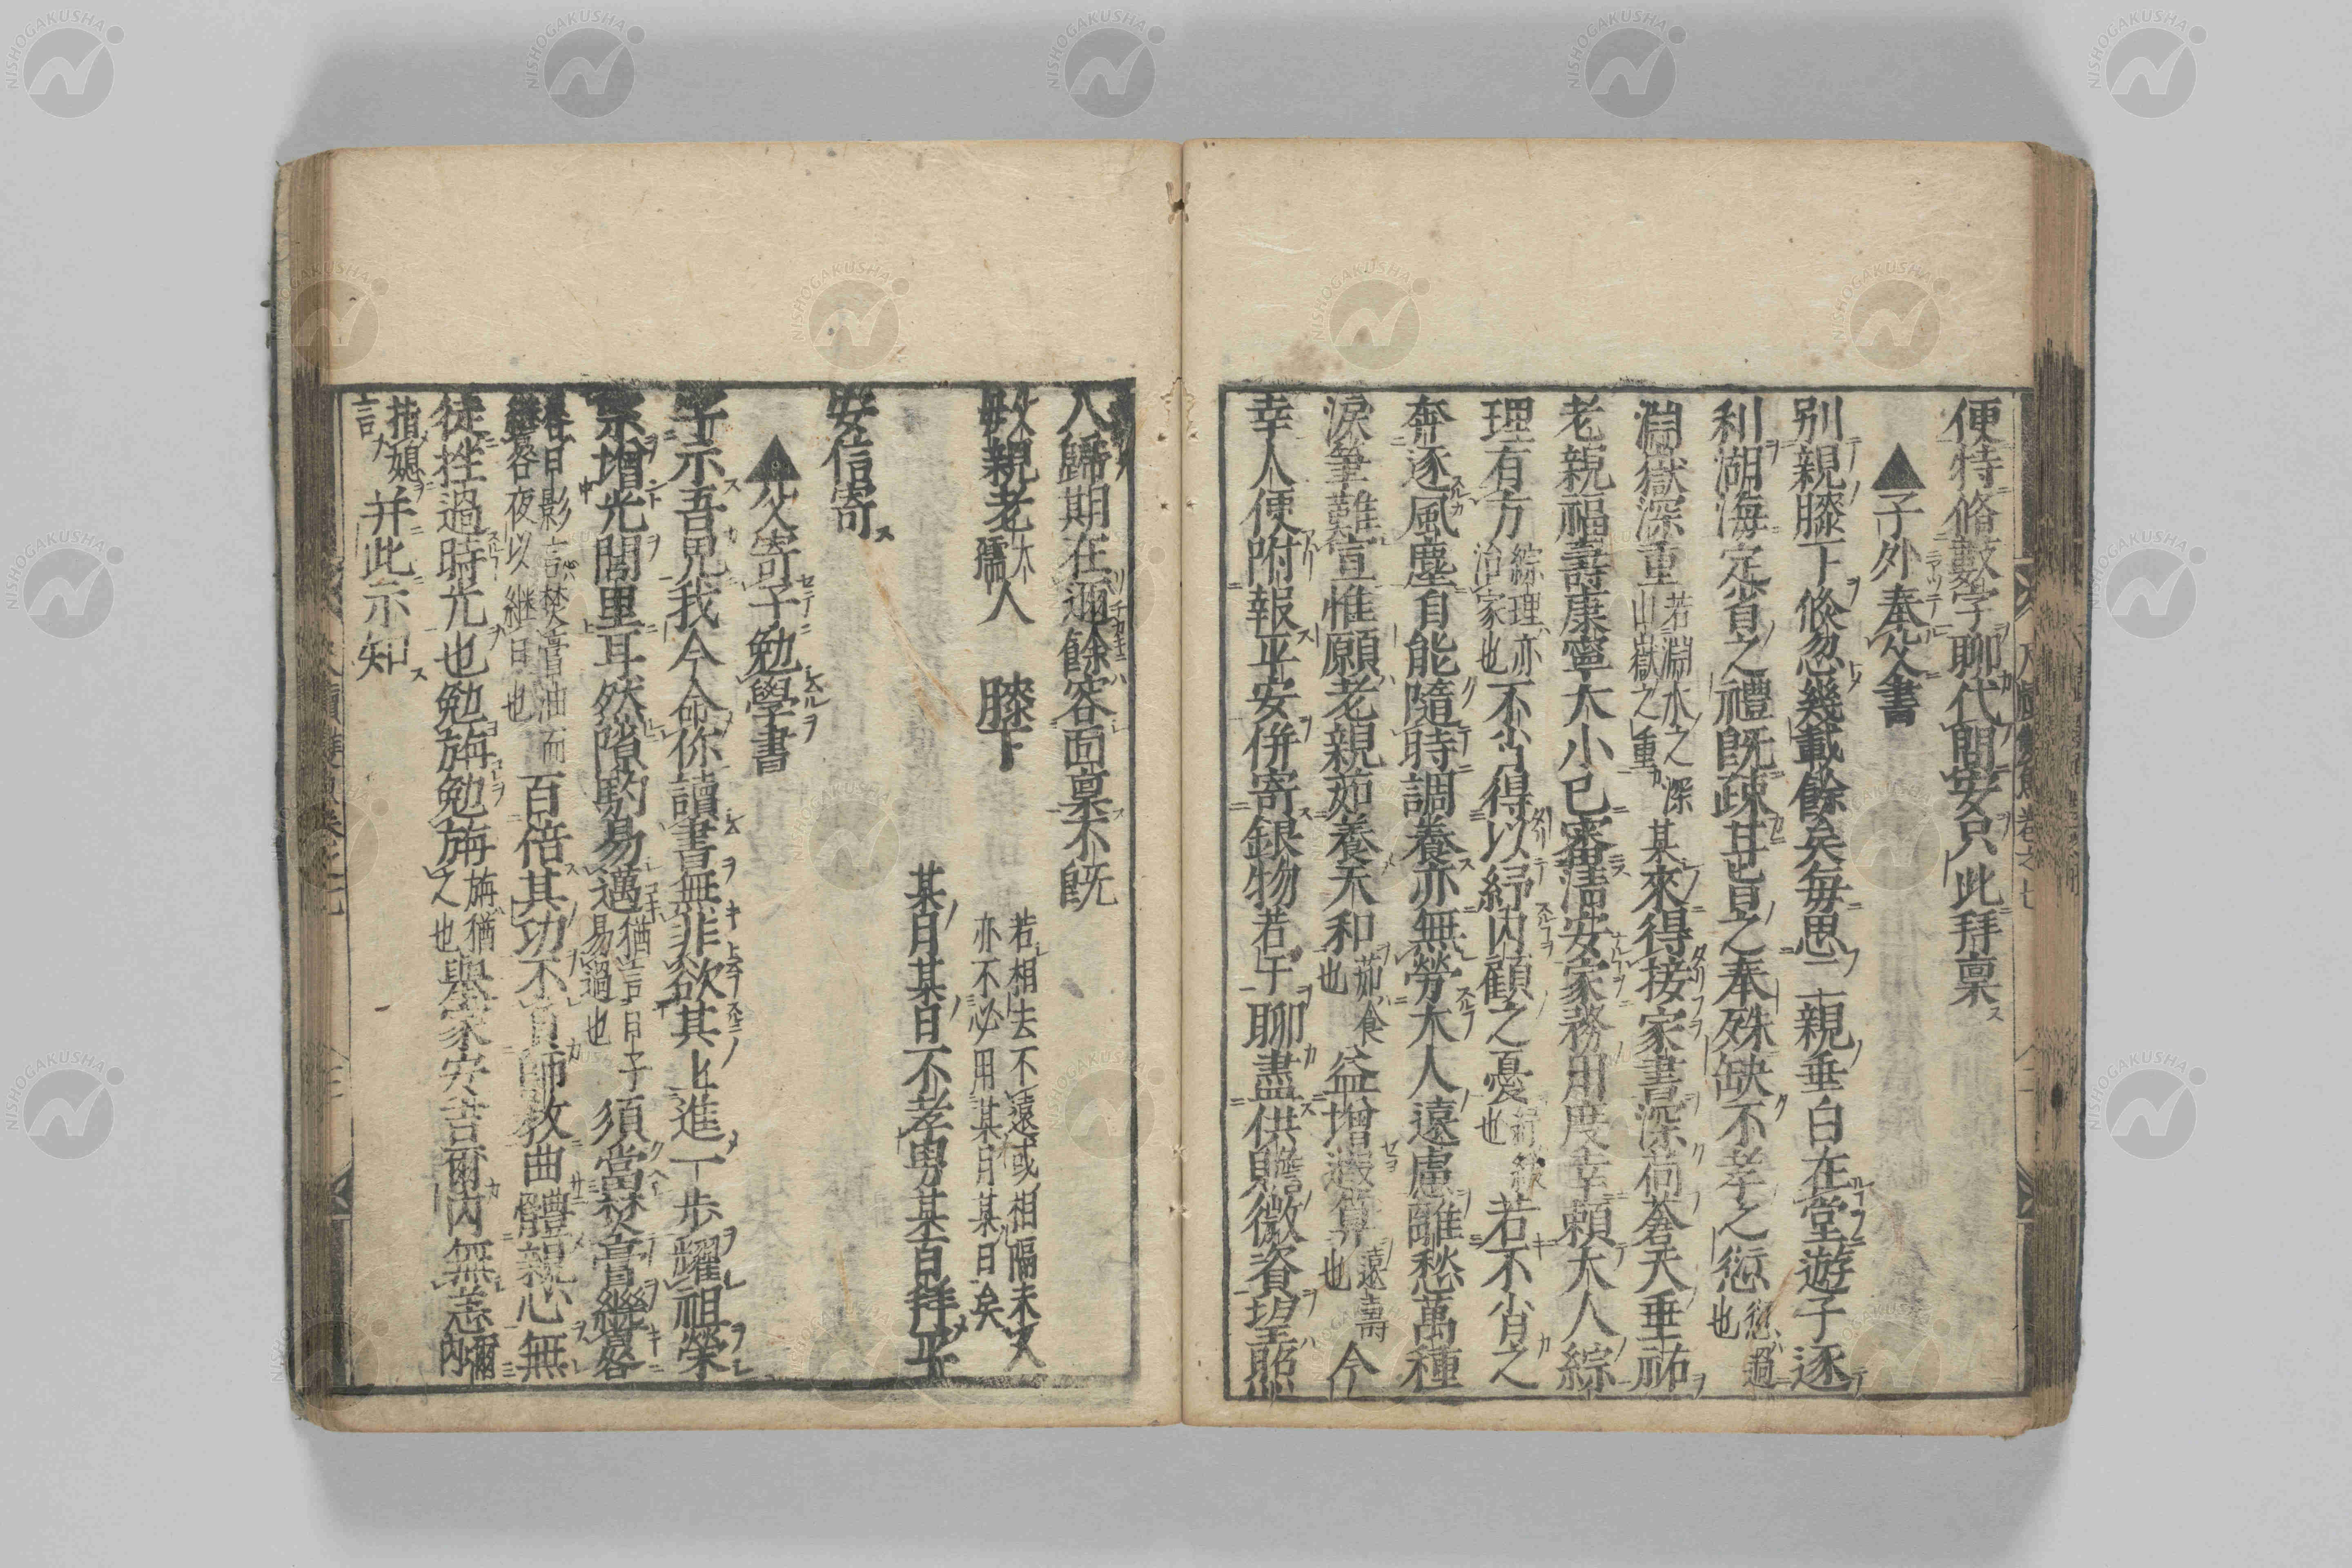 便特脩數字聊代問安只此拜禀
▲子外奉父書
別親膝下倏忽幾載餘矣毎思二親垂白在堂遊子逐
利湖海定省之禮既疎甘旨之奉殊缺不孝之愆愆過也
淵嶽深重若淵水之深山嶽之重某來得接家書深荷蒼天垂祐
老親福壽康寧大小已審清安家務用度幸頼大人綜
理有方綜理亦治家也不肖得以紓内顧之憂也若不肖之
奔逐風塵自能隨時調養亦無勞大人遠慮離愁萬種
淚筆難宣惟願老親茹養天和茹食也益增遐筭遠壽也今
幸人便附報平安併寄銀物若干聊盡供贍微資望照
入歸期在邇餘容面稟不既
父母親老大孺人 膝下 若相去不遠或相隔未久亦不必用某月某日矣
某月某日不孝男某百拜平
安信寄
▲父寄子勉學書
字示吾兒我今命你讀書無非欲其上進一步耀祖榮
宗增光閭里耳然隙駒易邁猶言日子易過也須當焚膏繼晷
晷日影言焚膏油而繼晷夜以継日也百倍其功不負師教曲體親心無
徒拴過時光也勉旃勉旃旃猶之也舉家安吉爾内無恙爾内
指媳言并此示知
NISHOGAKUSHA